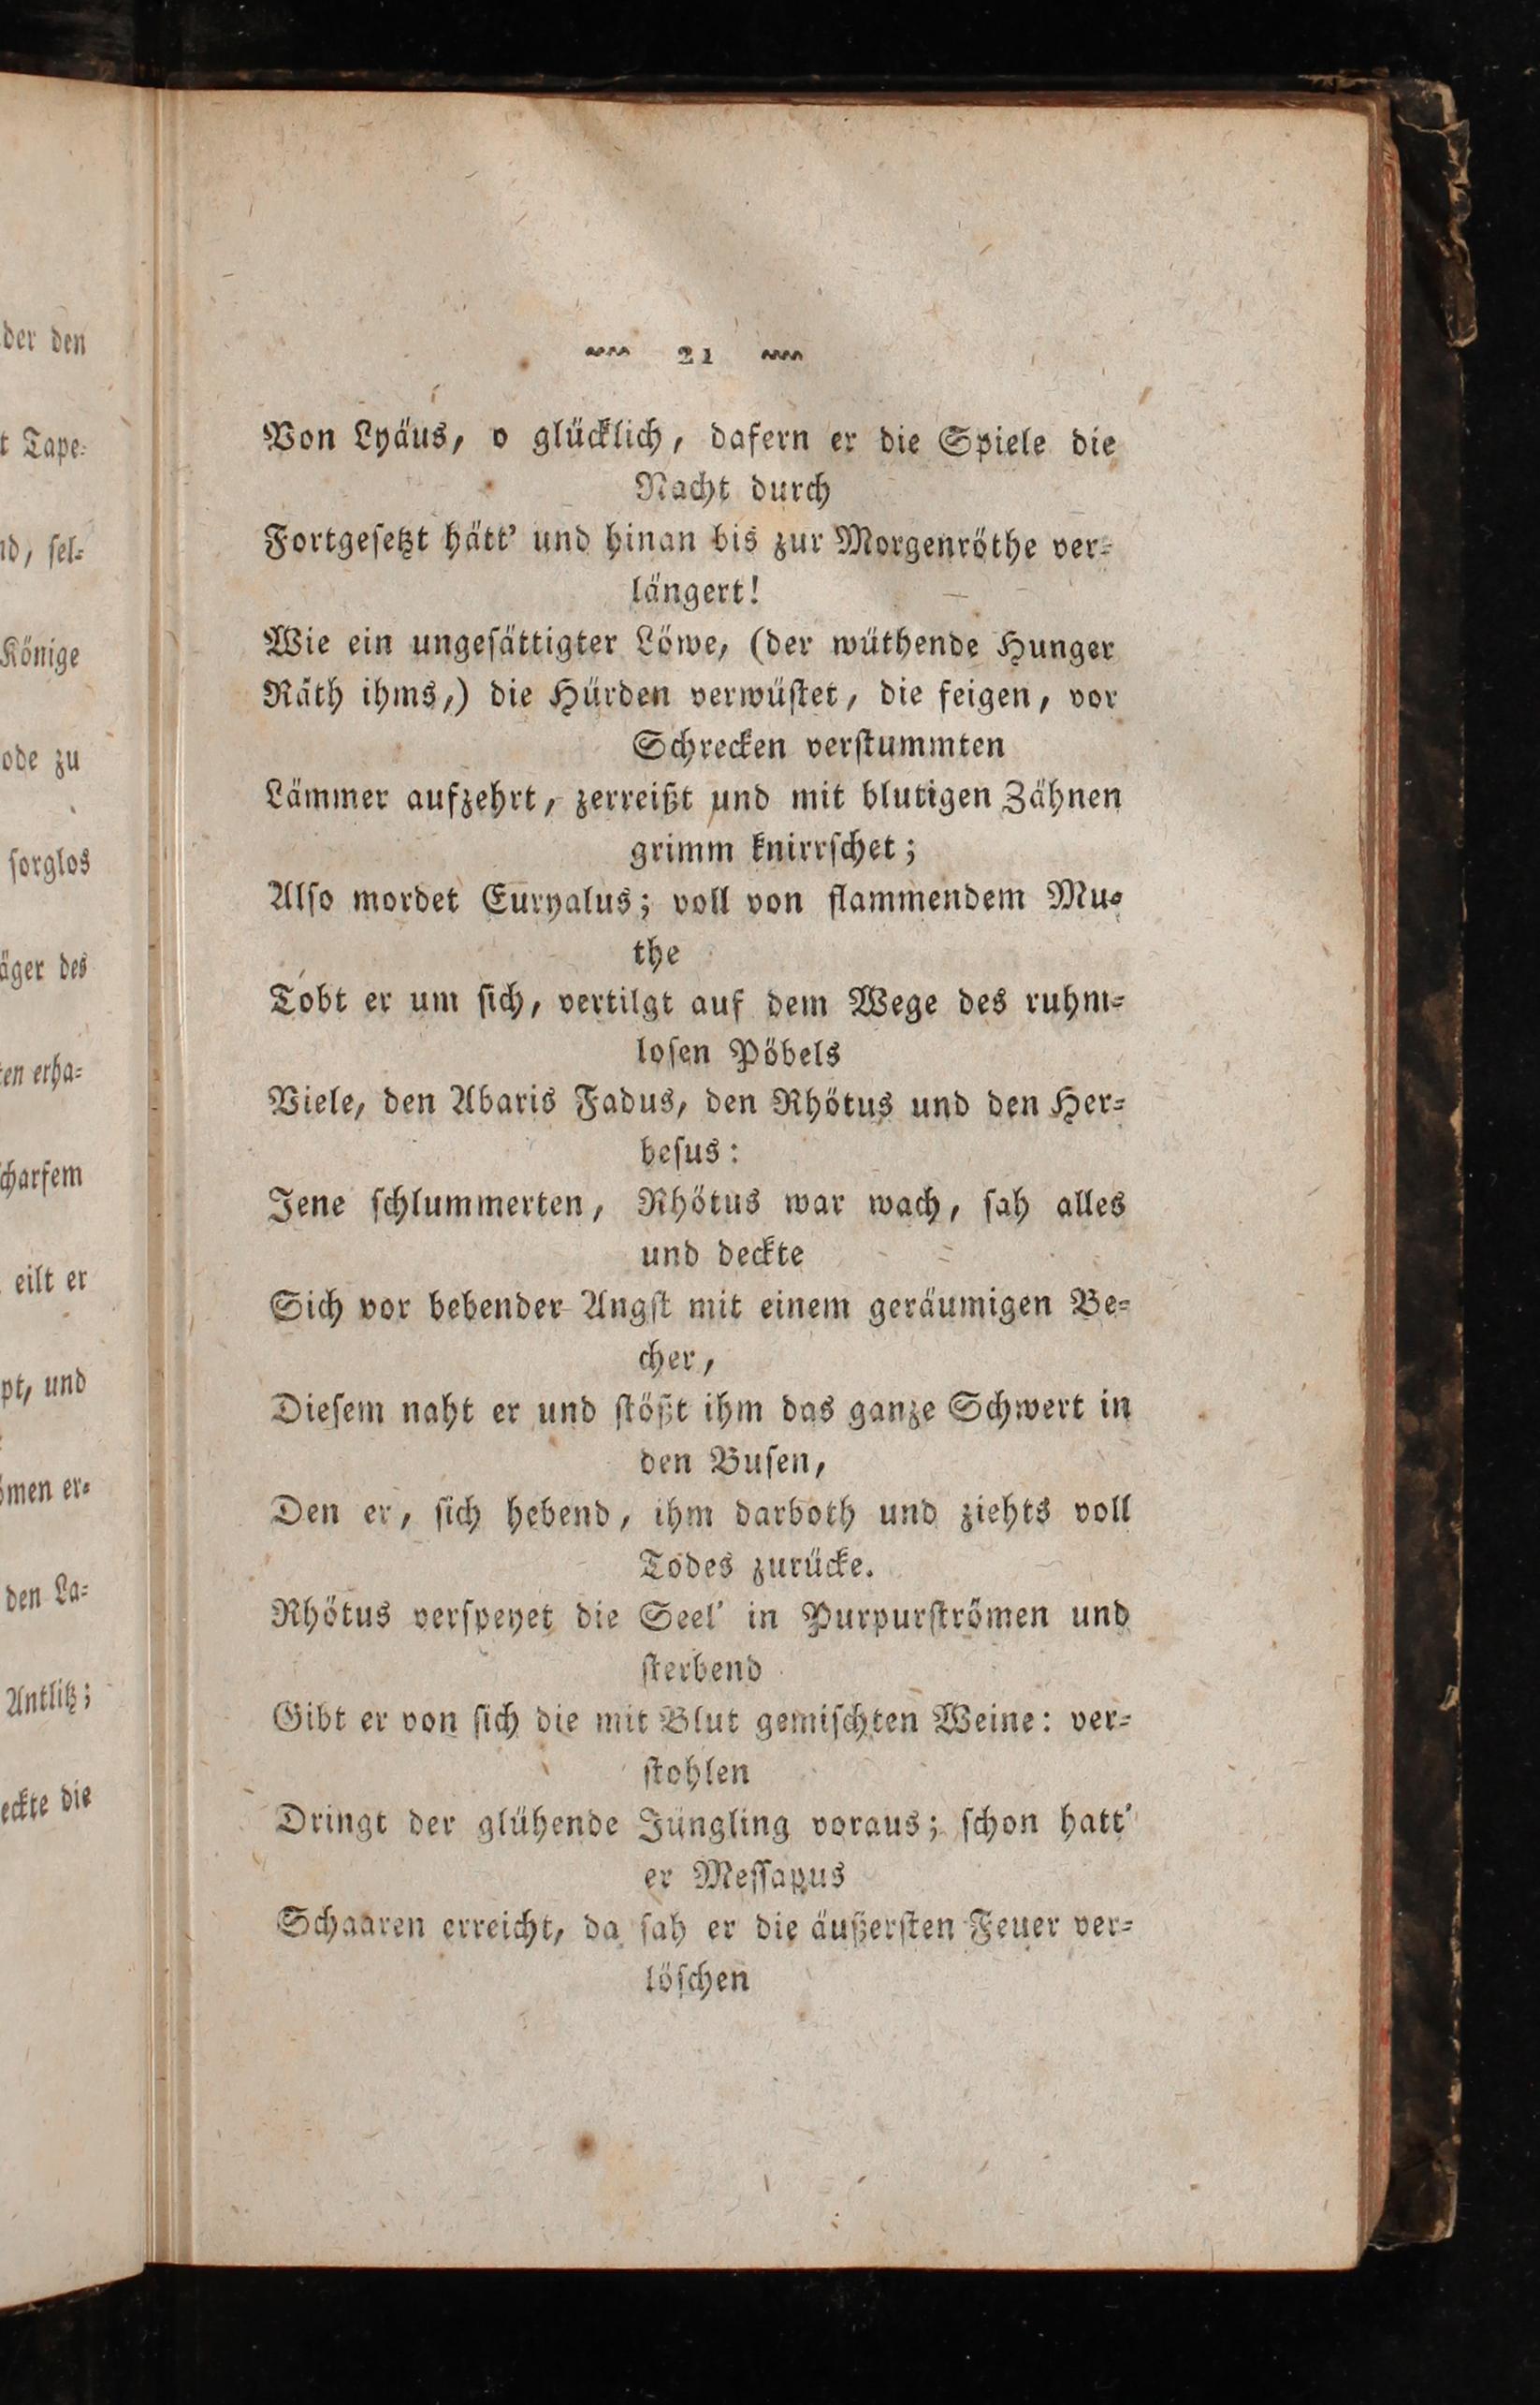 der den
t Tape-
nd, sel-
Könige
ode zu
sorglos
äger des
ten erha-
charfem
eilt er
pt, und
ömen er-
den La-
Antlitz;
eckte die
21
Von Lyäus, o glücklich, dafern er die Spiele die
Nacht durch
Fortgesetzt hätt' und hinan bis zur Morgenröthe ver-
längert!
Wie ein ungesättigter Löwe, (der wüthende Hunger
Räth ihms,) die Hürden verwüstet, die feigen, vor
Schrecken verstummten
Lämmer aufzehrt, zerreißt und mit blutigen Zähnen
grimm knirrschet;
Also mordet Euryalus; voll von flammendem Mu-
the
Tobt er um sich, vertilgt auf dem Wege des ruhm-
losen Pöbels
Viele, den Abaris Fadus, den Rhötus und den Her-
besus:
Jene schlummerten, Rhötus war wach, sah alles
und deckte
Sich vor bebender Angst mit einem geräumigen Be-
cher,
Diesem naht er und stößt ihm das ganze Schwert in
den Busen,
Den er, sich hebend, ihm darboth und ziehts voll
Todes zurücke.
Rhötus verspeyet die Seel' in Purpurströmen und
sterbend
Gibt er von sich die mit Blut gemischten Weine: ver-
stohlen
Dringt der glühende Jüngling voraus; schon hatt'
er Messapus
Schaaren erreicht, da sah er die äußersten Feuer ver-
löschen